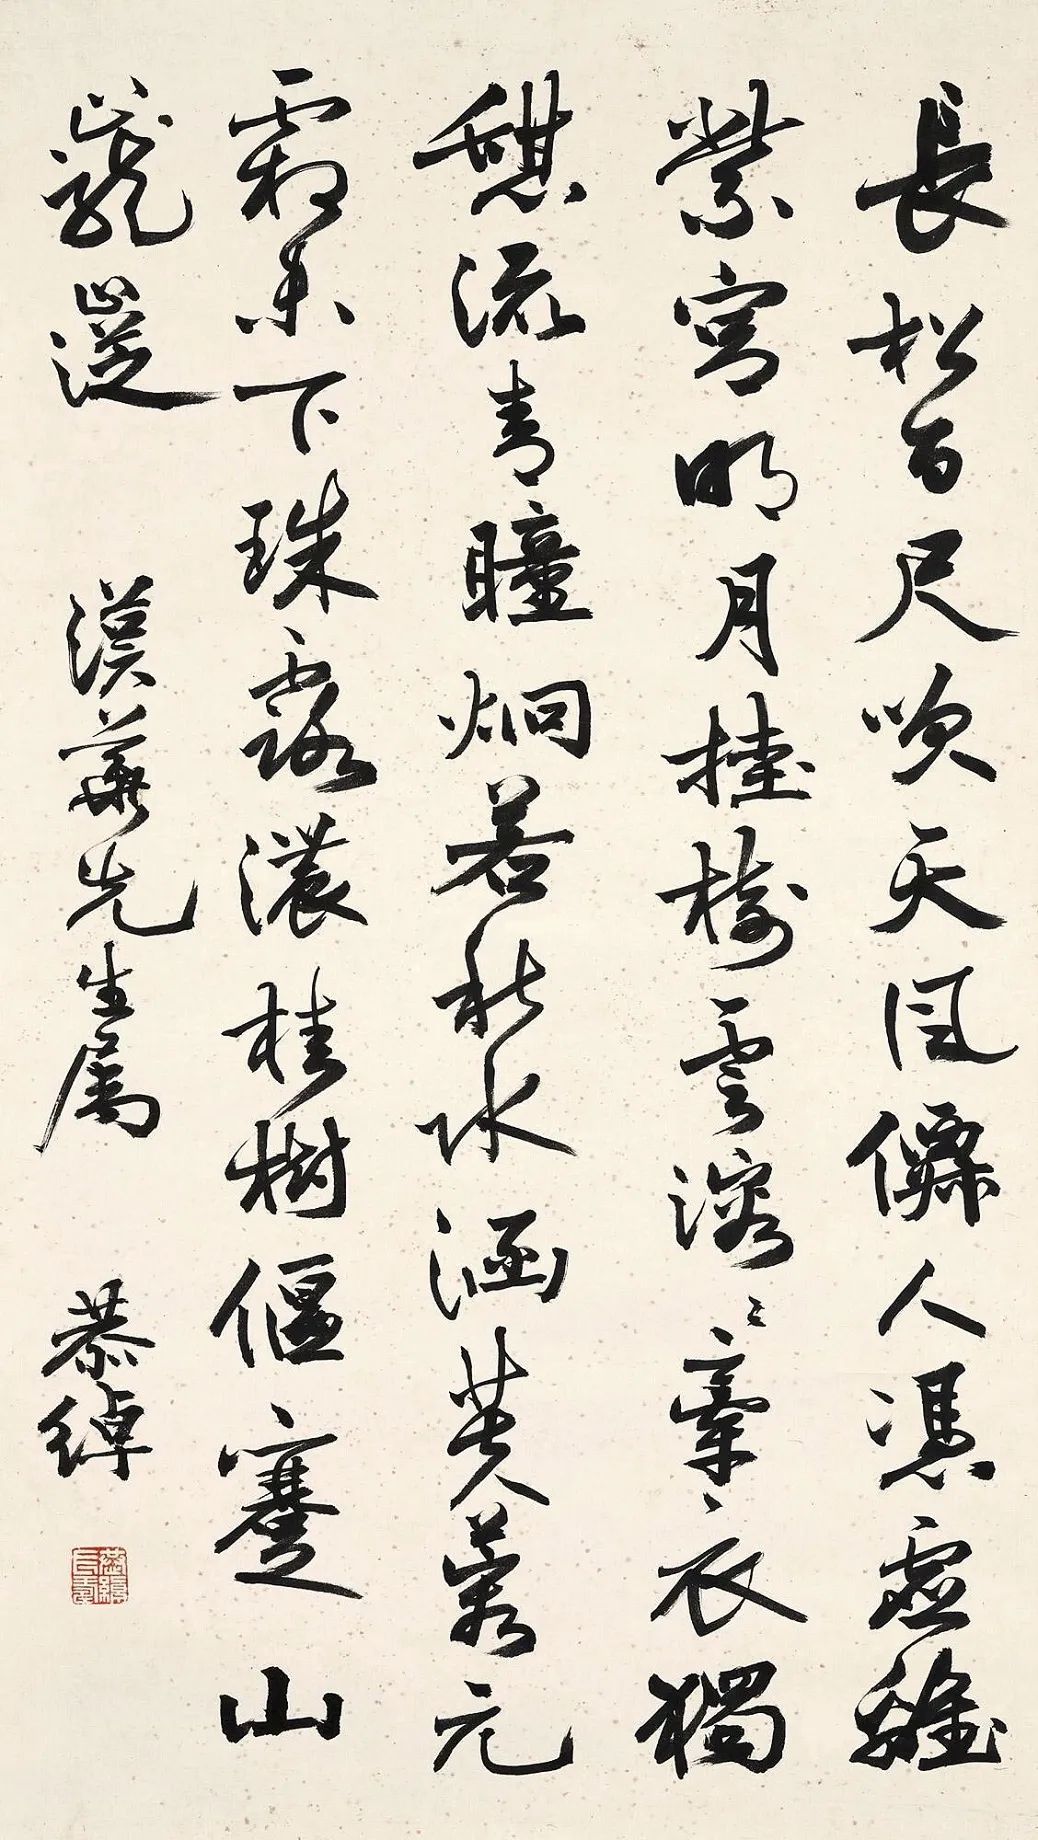 長松百尺吹天風僊人憑虛離
紫宮明月挂樹雲溶〻牽衣獨
憇流青瞳炯若秋水涵芙蓉元
霜未下珠露濃桂樹偃蹇山
巃嵷
漢華先生属
恭綽